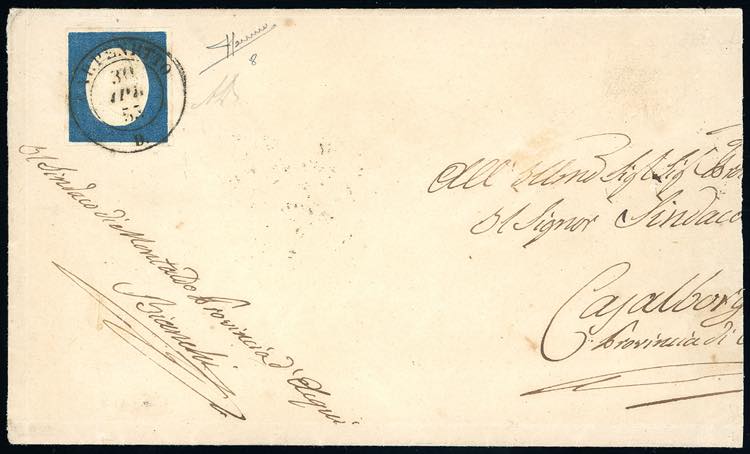 CARPENETTO
30
APR
53
D.
8
Il Sindaco di Montaldo Provincia d'Acqui
Bianchi
All
Sig Sig
Il Signor Sindaco
Casalborg
Provincia di